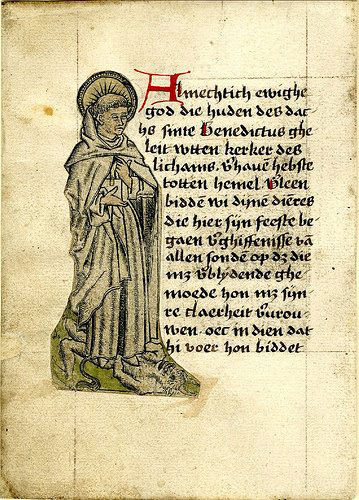 Almechtich ewighe
god die huden des dac
hs sinte Benedictus ghe
leit wtten kerker des
lichams. v̄hauē hebste
totten hemel. v̄leen
biddē wi dijnē diēres
die hier sijn feeste be-
gaen v̄ghiffenisse vā
allen sondē op dz die
mz v̄blydende ghe
moede hon mz sijn-
re claerheit v̄vrou-
wen. oec in dien dat
hi voer hon biddet